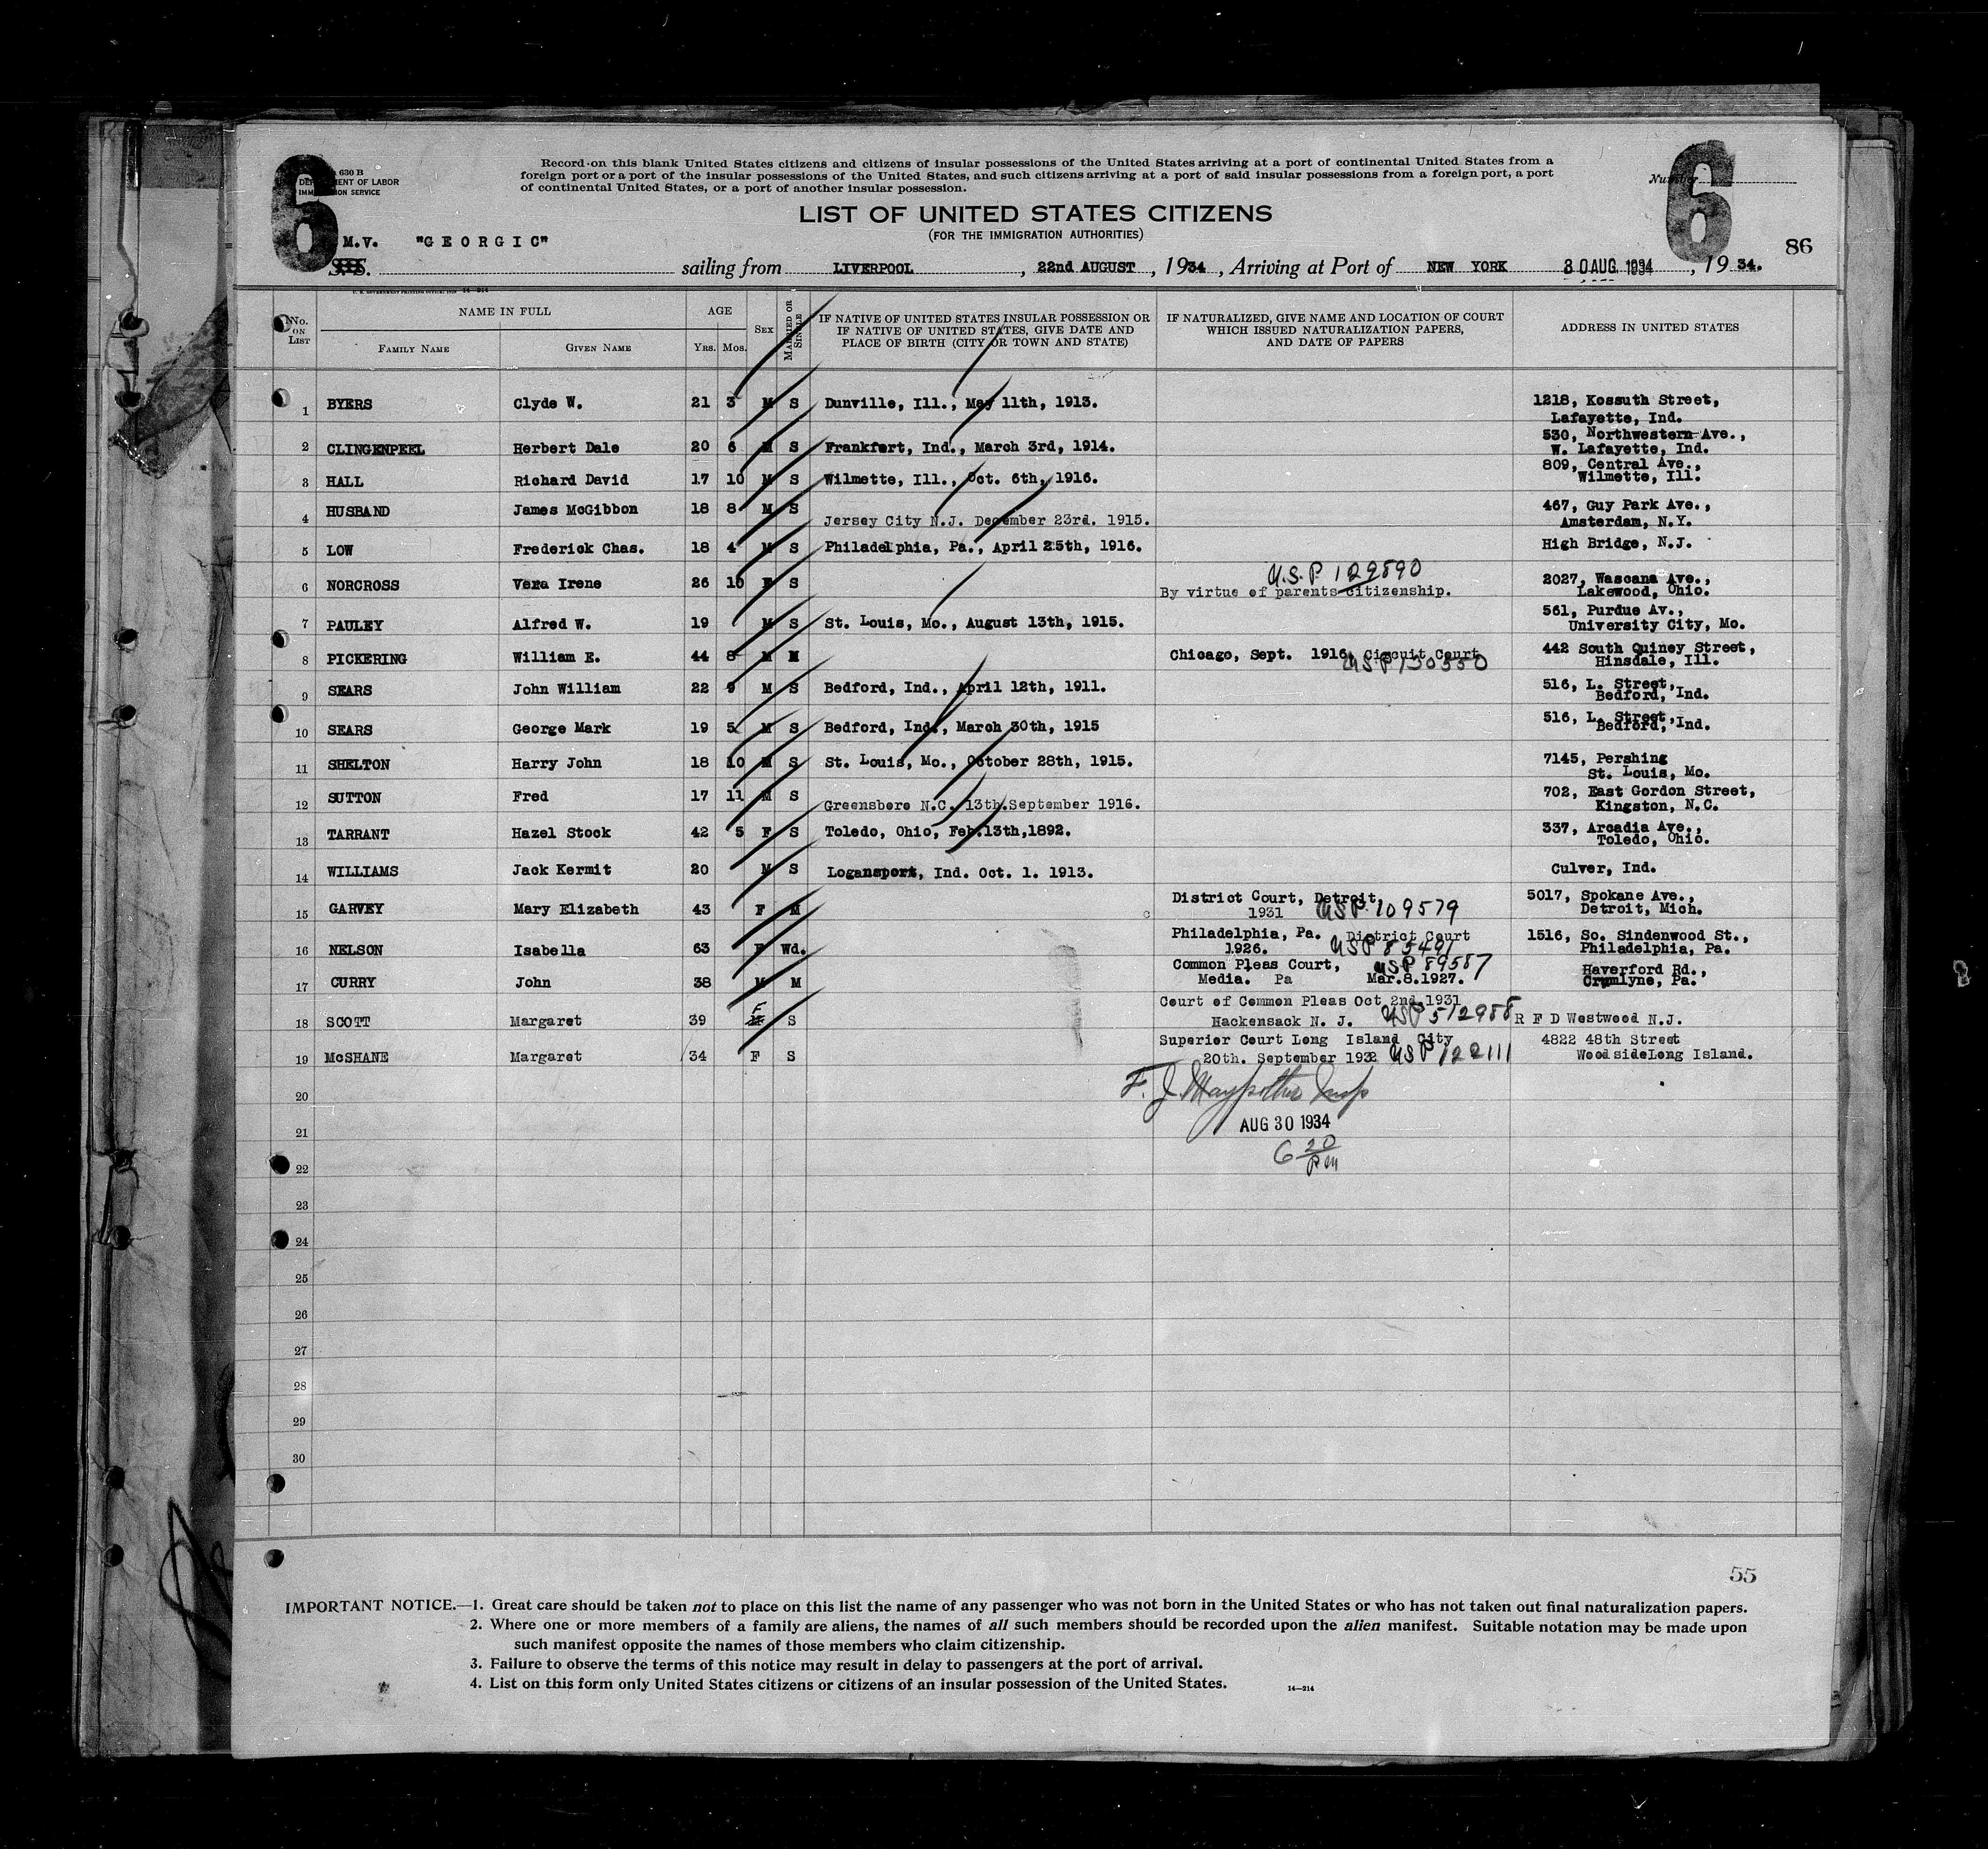 6
630 B
DEPARTMENT OF LABOR
IMMIGRATION SERVICE
Record on this blank United States citizens and citizens of insular possessions of the United States arriving at a port of continental United States from a
foreign port or a port of the insular possessions of the United States, and such citizens arriving at a port of said insular possessions from a foreign port, a port
of continental United States, or a port of another insular possession.
Number
6
LIST OF UNITED STATES CITIZENS
(FOR THE IMMIGRATION AUTHORITIES)
86
M.V. "GEORGIC"
S.S. sailing from LIVERPOOL, 22nd AUGUST, 1934, Arriving at Port of NEW YORK 30 AUG 1934, 1934.
No. ON LIST NAME IN FULL FAMILY NAME GIVEN NAME AGE YRS. MOS. SEX MARRIED OR SINGLE IF NATIVE OF UNITED STATES INSULAR POSSESSION OR IF NATIVE OF UNITED STATES, GIVE DATE AND PLACE OF BIRTH (CITY OR TOWN AND STATE) IF NATURALIZED, GIVE NAME AND LOCATION OF COURT WHICH ISSUED NATURALIZATION PAPERS, AND DATE OF PAPERS ADDRESS IN UNITED STATES
1 BYERS Clyde W. 21 3 M S Dunville, Ill., May 11th, 1913. 1218, Kossuth Street,
Lafayette, Ind.
2 CLINGENPEEL Herbert Dale 20 6 M S Frankfort, Ind., March 3rd, 1914. 530, Northwestern Ave.,
W. Lafayette, Ind.
3 HALL Richard David 17 10 M S Wilmette, Ill., Oct. 6th, 1916. 809, Central Ave.,
Wilmette, Ill.
4 HUSBAND James McGibbon 18 8 M S Jersey City N.J. December 23rd. 1915. 467, Guy Park Ave.,
Amsterdam, N.Y.
5 LOW Frederick Chas. 18 4 M S Philadelphia, Pa., April 25th, 1916. High Bridge, N.J.
U.S.P. 129890
6 NORCROSS Vera Irene 26 10 F S By virtue of parents citizenship. 2027, Wascana Ave.,
Lakewood, Ohio.
7 PAULEY Alfred W. 19 M S St. Louis, Mo., August 13th, 1915. 561, Purdue Av.,
University City, Mo.
8 PICKERING William E. 44 8 M M Chicago, Sept. 1916, Circuit Court 442 South Quiney Street,
USP 130550 Hinsdale, Ill.
9 SEARS John William 22 9 M S Bedford, Ind., April 12th, 1911. 516, L. Street,
Bedford, Ind.
10 SEARS George Mark 19 5 M S Bedford, Ind., March 30th, 1915 516, L. Street,
Bedford, Ind.
11 SHELTON Harry John 18 10 M S St. Louis, Mo., October 28th, 1915. 7145, Pershing
St. Louis, Mo.
12 SUTTON Fred 17 11 M S Greensboro N.C. 13th.September 1916. 702, East Gordon Street,
Kingston, N.C.
13 TARRANT Hazel Stock 42 5 F S Toledo, Ohio, Feb.13th,1892. 337, Arcadia Ave.,
Toledo, Ohio.
14 WILLIAMS Jack Kermit 20 M S Logansport, Ind. Oct. 1. 1913. Culver, Ind.
15 GARVEY Mary Elizabeth 43 F M District Court, Detroit, 5017, Spokane Ave.,
1931 USP 109579 Detroit, Mich.
16 NELSON Isabella 63 F Wd. Philadelphia, Pa. District Court 1516, So. Sindenwood St.,
1926. USP 85491 Philadelphia, Pa.
17 CURRY John 38 M M Common Pleas Court, USP 89587 Haverford Rd.,
Media. Pa Mar.8.1927. Crumlyne, Pa.
18 SCOTT Margaret 39 F S Court of Common Pleas Oct 2nd 1931
Hackensack N. J. USP 512988 R F D Westwood N.J.
19 McSHANE Margaret 34 F S Superior Court Long Island City 4822 48th Street
20th. September 1932 USP 122111 WoodsideLong Island.
20
F. J.
21
AUG 30 1934
6 20 PM
22
23
24
25
26
27
28
29
30
55
IMPORTANT NOTICE.—1. Great care should be taken not to place on this list the name of any passenger who was not born in the United States or who has not taken out final naturalization papers.
2. Where one or more members of a family are aliens, the names of all such members should be recorded upon the alien manifest. Suitable notation may be made upon
such manifest opposite the names of those members who claim citizenship.
3. Failure to observe the terms of this notice may result in delay to passengers at the port of arrival.
4. List on this form only United States citizens or citizens of an insular possession of the United States.
14—214